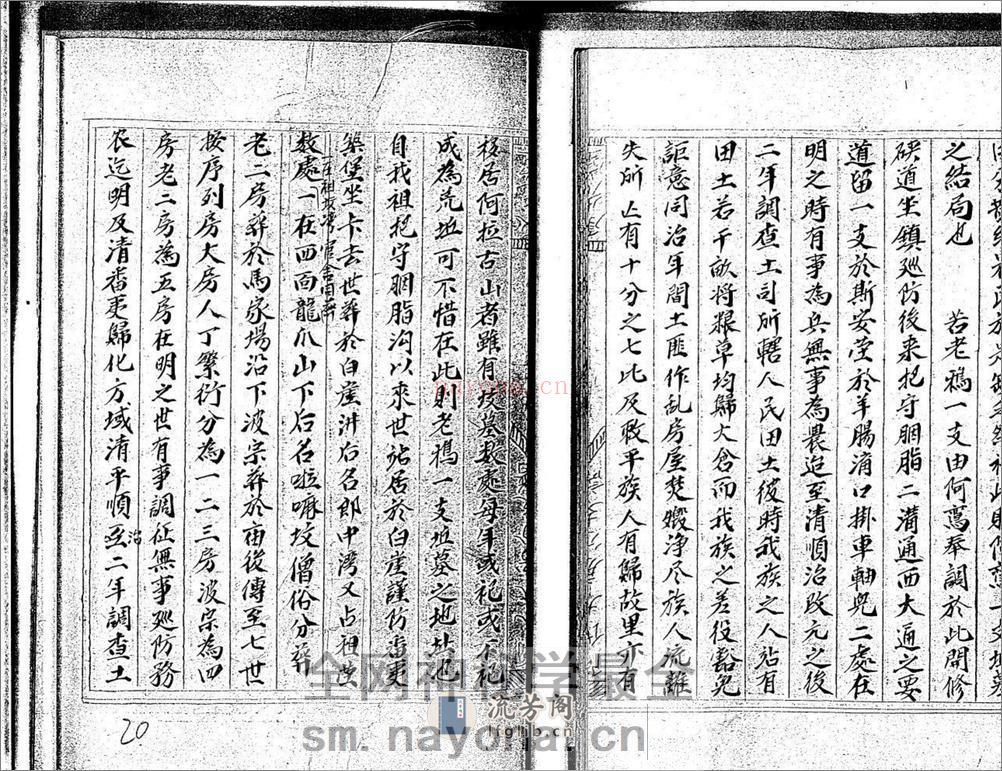 之结局也　苦老鴉一支由何駡奉調於此開修
硤道坐鎮廵防後来把守胭脂二溝通西大通之要
道留一支於斯安莹於羊腸溝口掛車軸兠二處在
明之時有事為兵無事為農迨至清順治改元之後
二年調查土司所轄人民田土彼時我族之人站有
田土若干畝將粮草均歸大倉而我族之差役豁免
詎意同治年間土匪作乱房屋焚燬净尽族人流離
失所亡有十分之七比及敉平族人有歸故里亦有
移居何拉古山者雖有坟墓数處每年或祀或不祀
成為荒坵可不惜在此則老鴉一支坵墓之地址也
自我祖把守胭脂沟以來世站居於白崖謹防畨吏
築堡坐卡去世葬於白崖洴后名郎中湾又占祖茔
数處一在四面龍爪山下后名啦嘛坟僧俗分葬
老二房葬於馬家場沿下波宗葬於亩後傳至七世
按序列房大房人丁繁衍分為一二三房波宗為四
房老二房為五房在明之世有事調征無事廵防務
农迄明及清畨吏歸化方域清平順治二年調查土
20
全网神秘学最全
流芳阁
lfglib.cn
sm.nayona.cn
nayona.cn